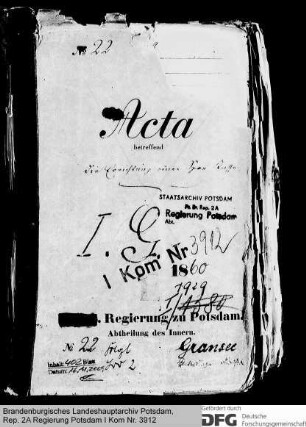 No 22
Acta
betreffend
die Errichtung einer Spar Kasse
STAATSARCHIV POTSDAM
Pr. Br. Rep. 2A
Regierung Potsdam
I. G.
I Kom Nr 3912
1860
1929
Regierung zu Potsdam.
Abtheilung des Innern.
No 22
Gransee
Inhalt: 402 Blatt
Brandenburgisches Landeshauptarchiv Potsdam,
Rep. 2A Regierung Potsdam I Kom Nr. 3912
Gefördert durch
DFG Deutsche
Forschungsgemeinschaft